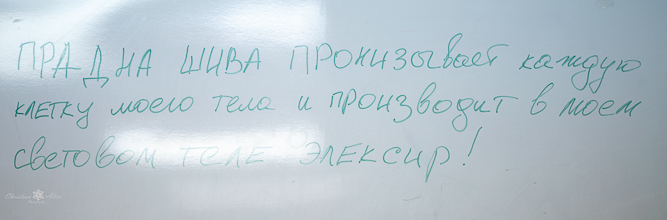 ПРАДНА ШИВА ПРОНИЗЫВает каждую
клетку моего тела и производит в моем
световом теле элексир!